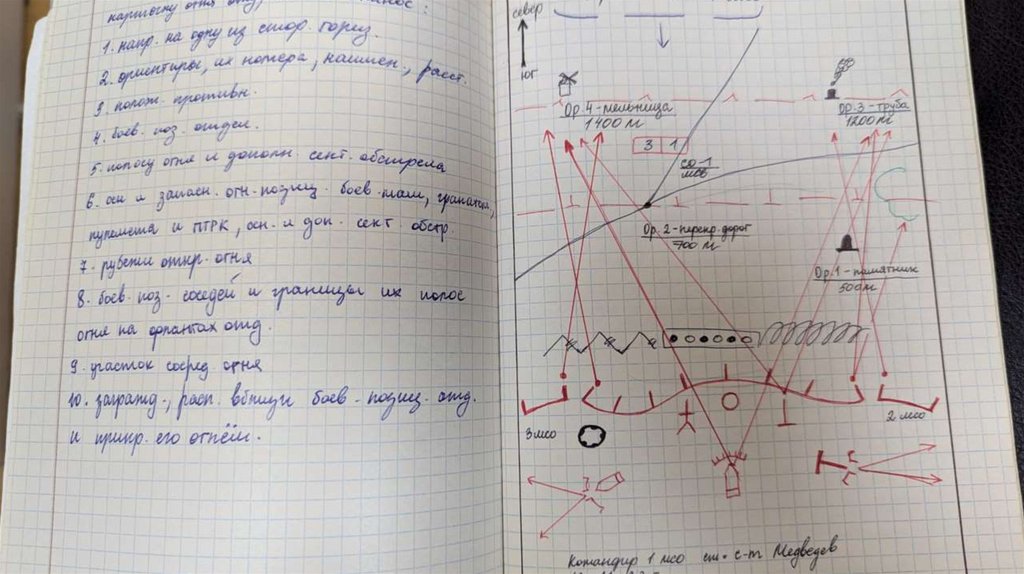 карточку огня
1. напр. на одну из стор. гориз.
2. ориентиры, их номера, наимен., расст.
3. полож. противн.
4. боев. поз. отдел.
5. полосу огня и дополн. сект. обстрела
6. осн и запасн. огн. позиц. боев. маш, гранатом,
пулемета и ПТРК, осн. и доп. сект обстр.
7. рубежи откр. огня
8. боев. поз. соседей и границы их полос
огня на флангах отд.
9. участок сосред огня
10. загражд., расп. вблизи боев. позиц. отд.
и прикр. его огнём.
север
юг
Ор. 4 - мельница
1400 м
Ор. 3 - труба
1200 м
3 1
СО-1
мсв
Ор. 2 - перекр. дорог
700 м
Ор. 1 - памятник
500 м
3 мсо
2 мсо
Командир 1 мсо ст. с-т Медведев